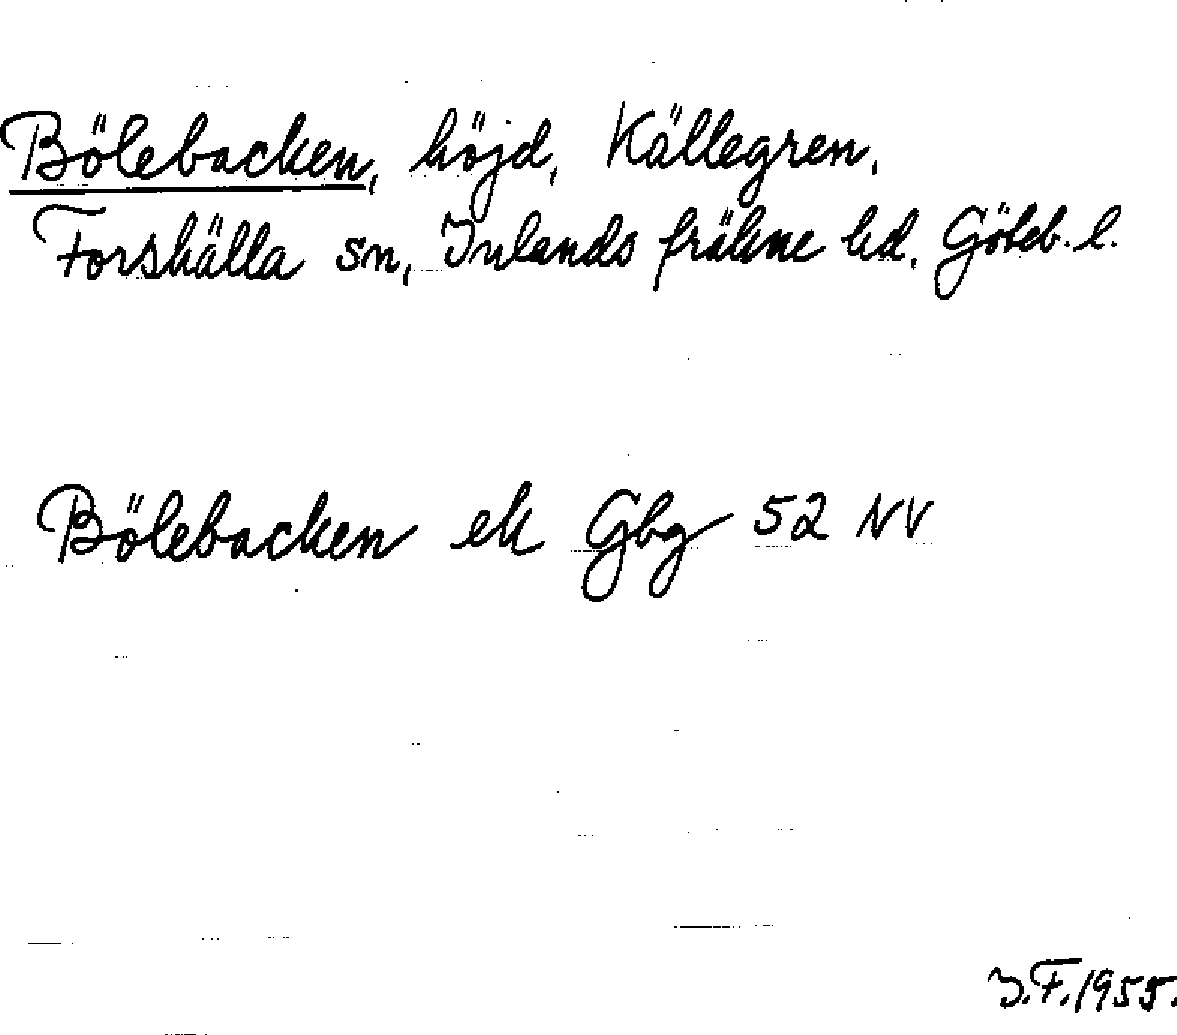 Bölebacken, höjd, Källegren,
Forshälla sn, Inlands fräkne hd, Göteb. l.
Bölebacken ek Gbg 52 NV
I.F. 1955.